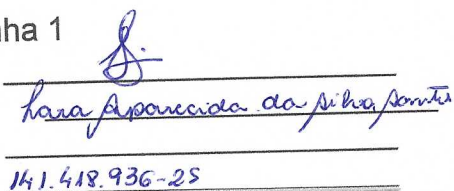 nha 1
Lara Aparecida da Silva Santos
141.418.936-25